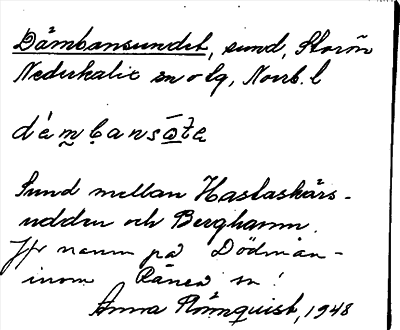 Dämbansundet, sund, Storön
Nederkalix sn o lg, Norrb. l
dämbansøte
Sund mellan Hastaskärs-
udden och Berghamn.
Jfr namn på Dödman-
inom Råneå sn!
Anna Rönnquist, 1948